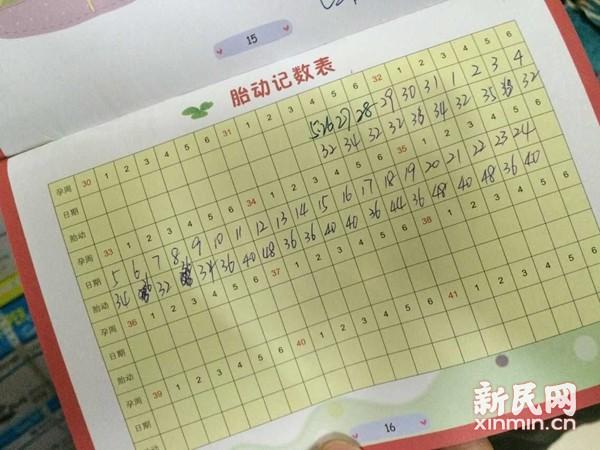 15
胎动记数表
孕周 30 1 2 3 4 5 6 31 1 2 3 4 5 6 32 1 2 3 4 5 6
日期 26 27 28 29 30 31 1 2 3 4
胎动 32 34 32 32 36 34 32 35 32
孕周 33 1 2 3 4 5 6 34 1 2 3 4 5 6 35 1 2 3 4 5 6
日期 5 6 7 8 9 10 11 12 13 14 15 16 17 18 19 20 21 22 23 24
胎动 34 36 32 34 36 40 48 36 36 40 40 36 44 36 48 40 48 36 40
孕周 36 1 2 3 4 5 6 37 1 2 3 4 5 6 38 1 2 3 4 5 6
日期
胎动
孕周 39 1 2 3 4 5 6 40 1 2 3 4 5 6 41 1 2 3 4 5 6
日期
胎动
16
新民网
xinmin.cn